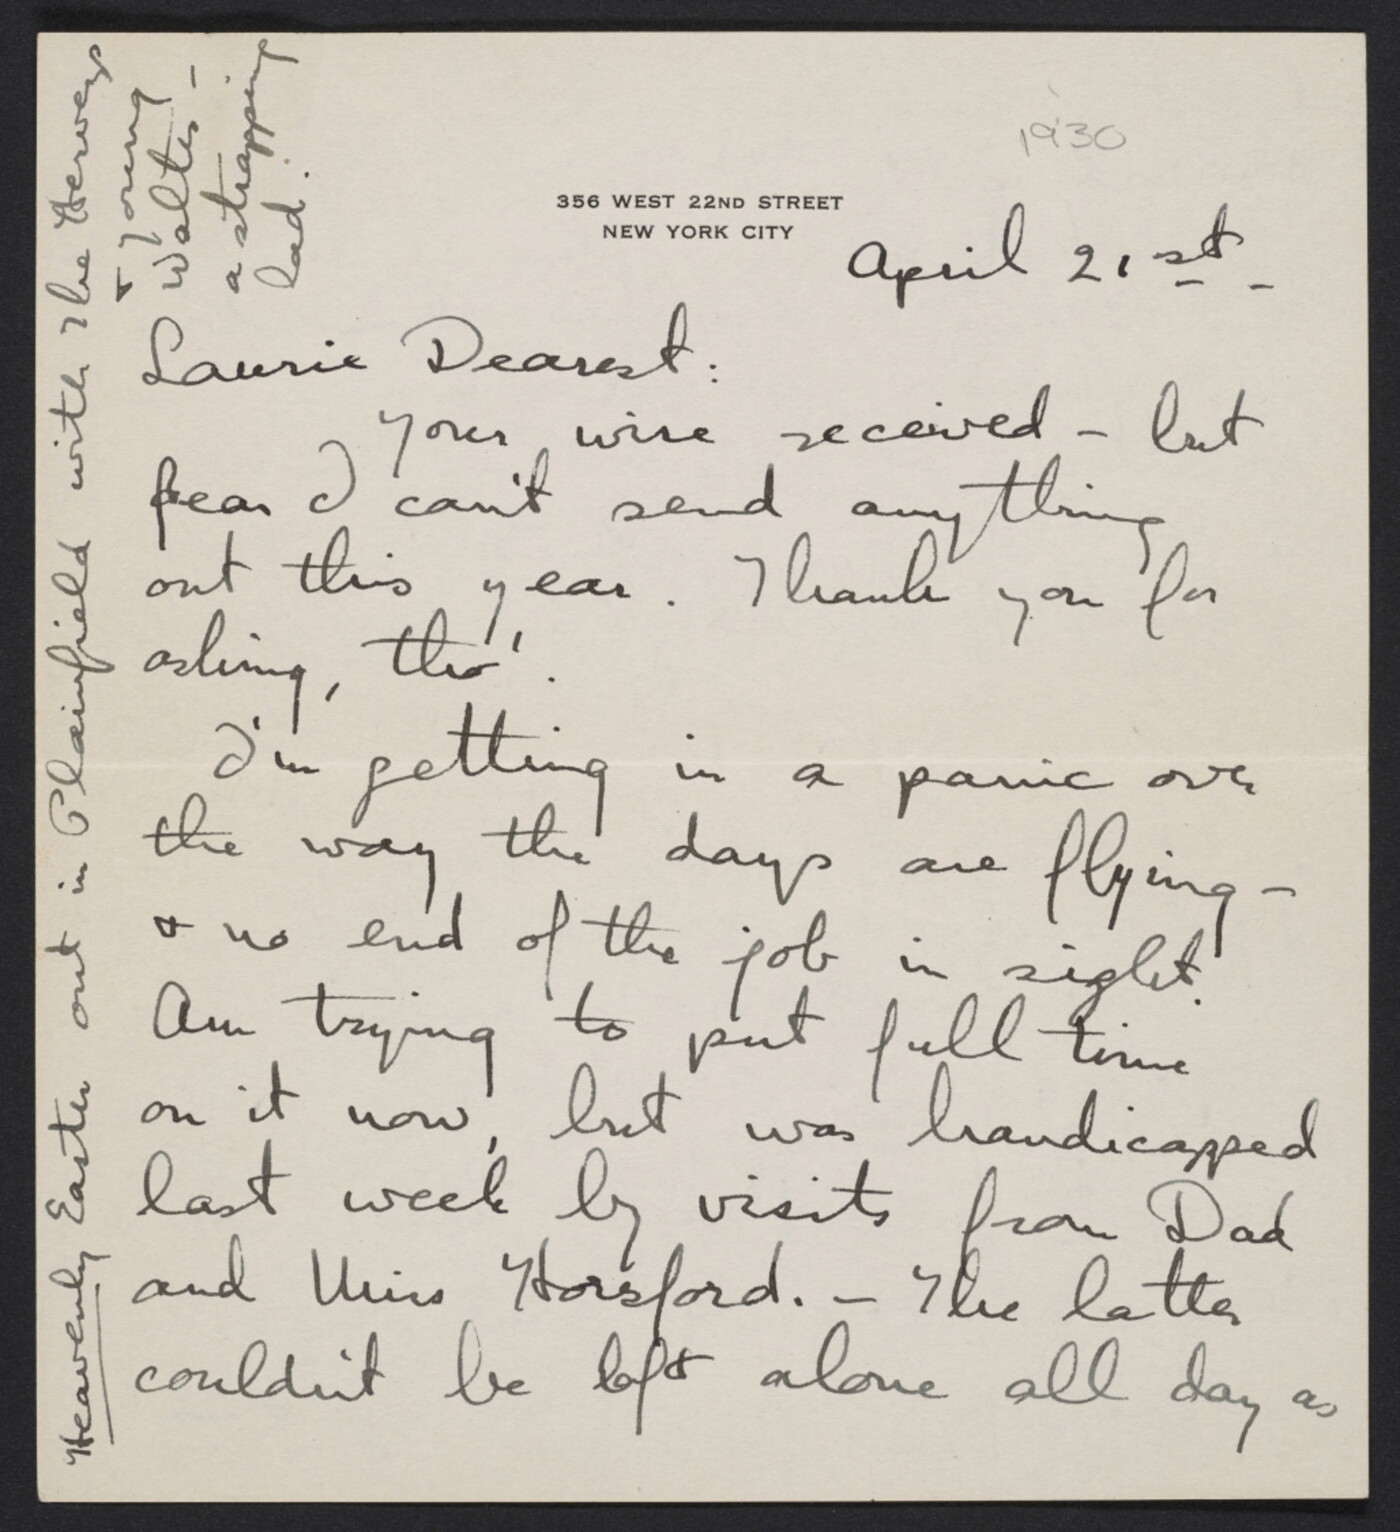 1930
356 WEST 22ND STREET
NEW YORK CITY
April 21st -
Laurie Dearest:
Your wire received - but
fear I can't send anything
out this year. Thank you for
asking, tho'.
I'm getting in a panic over
the way the days are flying -
& no end of the job in sight.
Am trying to put full time
on it now, but was handicapped
last week by visits from Dad
and Miss Horsford. - The latter
couldn't be left alone all day as
Heavenly Easter out in Plainfield with the Herveys
& young
Walter -
a strapping
lad.